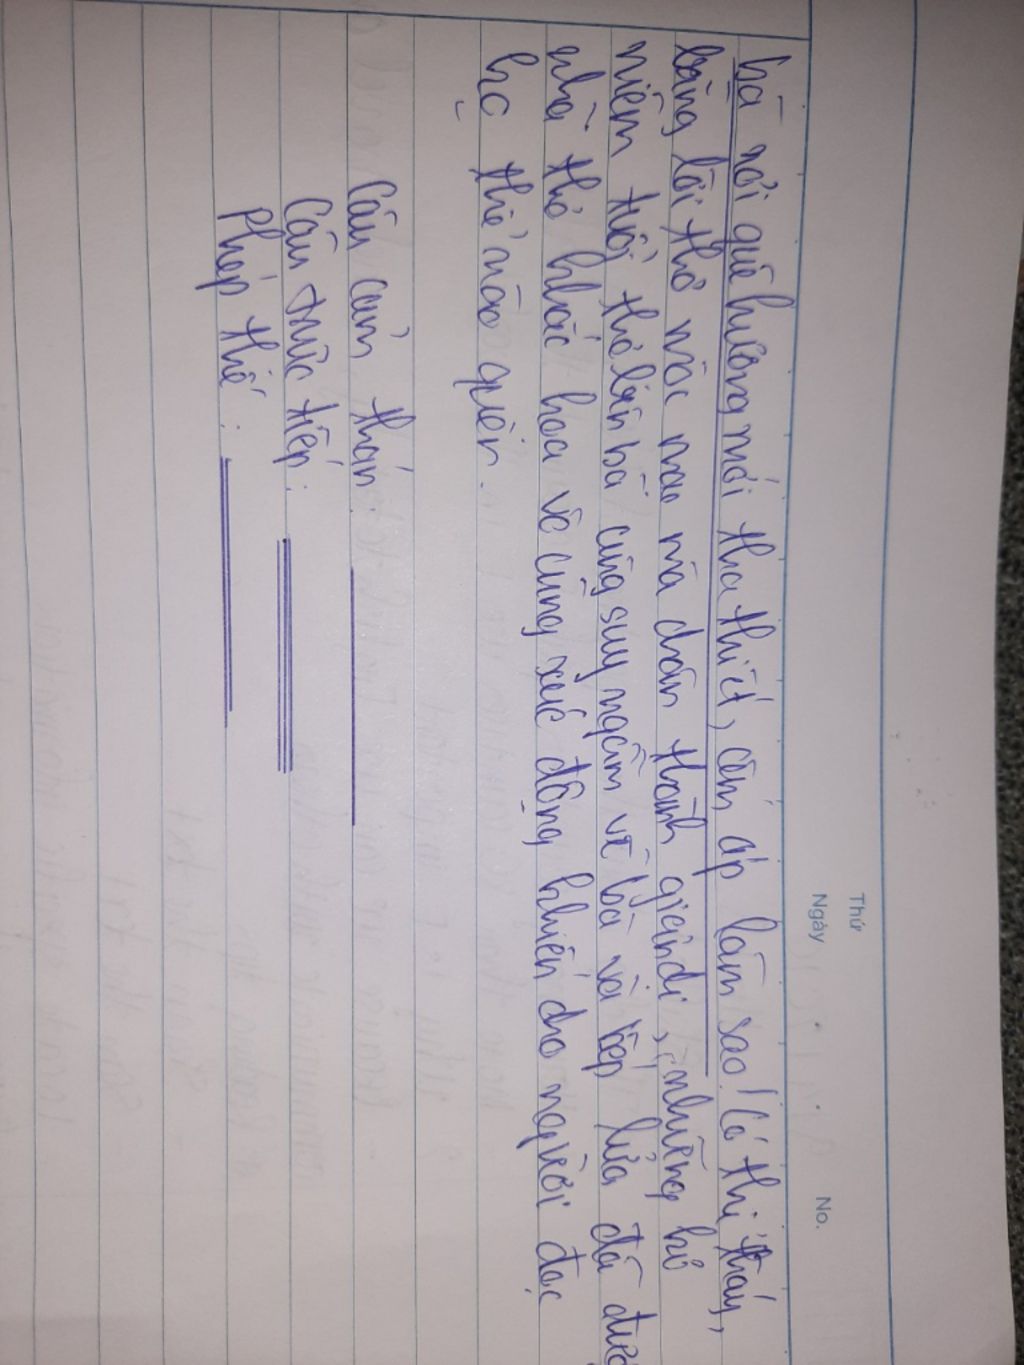 Thứ
Ngày
No.
bà nơi quê hương mới tha thiết, ấm áp làm sao! Có thể thấy,
bằng lời thơ nức nao mà dân thành giản dị, những kỉ
niệm tuổi thơ bên bà cùng suy ngẫm về bà và bếp lửa đã được
nhà thơ khắc hoạ vô cùng xúc động khiến cho người đọc
ko thể nào quên.
Câu cảm thán:
Câu trực tiếp:
Phép thế: